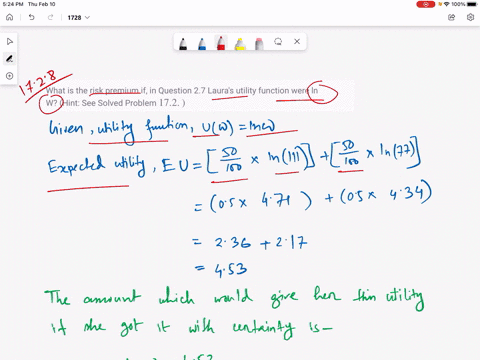 5:24 PM Thu Feb 10
100%
1728
17.2.8
What is the risk premium if, in Question 2.7 Laura's utility function were ln
W? (Hint: See Solved Problem 17.2. )
Given, utility function, U(W) = lnW
Expected utility, EU = [50/100 × ln(111)] + [50/100 × ln(77)]
= (0.5 × 4.71) + (0.5 × 4.34)
= 2.36 + 2.17
= 4.53
The amount which would give her this utility
if she got it with certainty is—